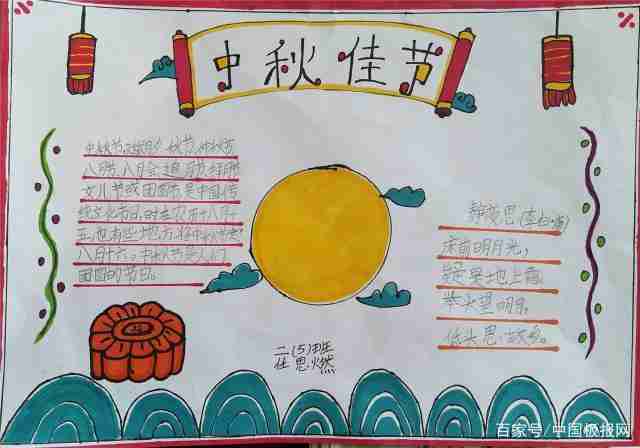 中秋佳节
中秋节,又称月夕、秋节、仲秋节
八月节、八月会、追月节、拜月节
女儿节或团圆节,是中国传
统文化节日,时在农历十八月十
五,也有些地方将中秋节定
八月十六。中秋节是人们
团圆的节日。
静夜思(李白·唐)
床前明月光,
疑是地上霜。
举头望明月,
低头思故乡。
二(5)班
任思燃
百家号/中国板报网